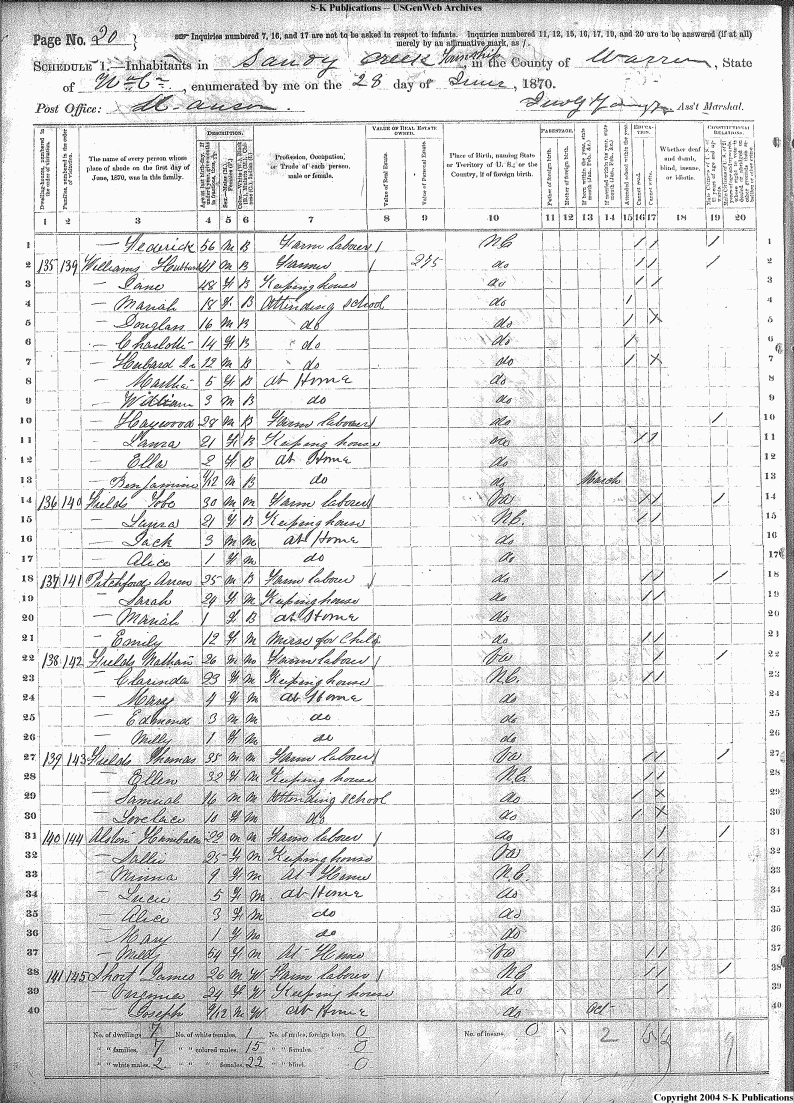 S-K Publications -- USGenWeb Archives
Page No. 20
Inquiries numbered 7, 16, and 17 are not to be asked in respect to infants. Inquiries numbered 11, 12, 15, 16, 17, 19, and 20 are to be answered (if at all) merely by an affirmative mark, as /.
SCHEDULE 1.—Inhabitants in Sandy Creek Township, in the County of Warren, State
of N. C., enumerated by me on the 28 day of June, 1870.
Post Office: Ass't Marshal.
Dwelling-houses, numbered in the order of visitation.
Families, numbered in the order of visitation.
The name of every person whose place of abode on the first day of June, 1870, was in this family.
DESCRIPTION.
Profession, Occupation, or Trade of each person, male or female.
VALUE OF REAL ESTATE OWNED.
Value of Real Estate.
Value of Personal Estate.
Place of Birth, naming State or Territory of U. S.; or the Country, if of foreign birth.
PARENTAGE.
Father of foreign birth.
Mother of foreign birth.
Attended school within the year.
Cannot read.
Cannot write.
Whether deaf and dumb, blind, insane, or idiotic.
CONSTITUTIONAL RELATIONS.
1 2 3 4 5 6 7 8 9 10 11 12 13 14 15 16 17 18 19 20
1 — Frederick 56 M B Farm labourer / NC / / / 1
2 135 139 Williams 48 M B Farmer / 275 do / / / 2
3 — Jane 48 F B Keeping house do / / 3
4 — Mariah 18 F B Attending school do / 4
5 — Douglass 16 M B do do / X 5
6 — Charlotte 14 F B do do / 6
7 — Hubard Jr 12 M B do do / X 7
8 — Martha 5 F B at Home do 8
9 — William 3 M B do do 9
10 — Haywood 28 M B Farm labourer / do / 10
11 — Laura 21 F B Keeping house do / / 11
12 — Ella 2 F B at Home do 12
13 — Benjamine /12 M B do do March 13
14 136 140 Fields Tobe 30 M M Farm labourer / Va / / / 14
15 — Laura 21 F B Keeping house N.C. / / 15
16 — Jack 3 M M at Home do 16
17 — Alice 1 F M do do 17
18 137 141 Pitchford Arron 25 M B Farm labourer / do / / / 18
19 — Sarah 29 F M Keeping house do / / 19
20 — Mariah 1 F B at Home do 20
21 — Emily 12 F M Nurse for Child do / / 21
22 138 142 Fields Nathan 26 M M Farm labourer / Va / / 22
23 — Clarinda 23 F M Keeping house N.C. / / 23
24 — Mary 4 F M at Home do 24
25 — Edmond 3 M M do do 25
26 — Milly 1 F M do do 26
27 139 143 Fields Thomas 35 M M Farm labourer / Va / / / 27
28 — Ellen 32 F M Keeping house N.C. / / 28
29 — Samuel 16 M M Attending school do / X 29
30 — Lovelace 10 F M do do / X 30
31 140 144 Alston 22 M M Farm labourer / do / / 31
32 — Sallie 25 F M Keeping house Va / / 32
33 — Minna 9 F M At Home N.C. / 33
34 — Lucie 5 F M at Home do 34
35 — Alice 3 F M do do 35
36 — Mary 1 F M do do 36
37 — Milly 54 F M At Home Va / / 37
38 141 145 Short James 26 M W Farm labourer / NC / / / 38
39 — Virginia 24 F W Keeping house do / 39
40 — Joseph /12 M W at Home do Oct 40
No. of dwellings, 7 No. of white females, 1 No. of males, foreign born, 0 No. of insane, 0 2
" " families, 7 " " colored males, 15 " " females, 0
" " white males, 2 " " females, 22 " " blind, 0
Copyright 2004 S-K Publications